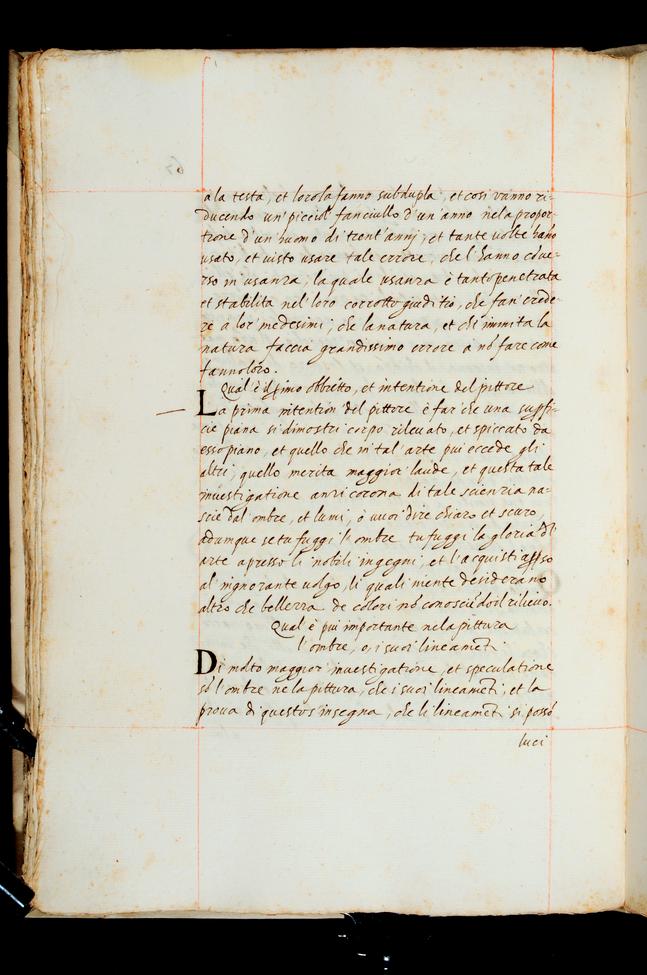 a la testa, et loro la fanno subdupla, et cosi vanno ri=
ducendo un' piccol' fanciullo d'un' anno ne la propor=
tione d'un' huomo di trent' anni; et tante volte hāno
usato, et visto usare tale errore, che l' hanno cōue=
rso in usanza; la quale usanza è tanto penetrata
et stabilita nel' loro corrotto giuditio, che fan' crede=
re a lor' medesimi; che la natura, et chi immita la
natura faccia grandissimo errore a nō fare come
fanno loro.
Qual' è il pimo obbietto, et intentione del pittore
La prima intention' del pittore è far' che una supfi=
cie piana si dimostri corpo rileuato, et spiccato da
esso piano, et quello che in tal' arte piu eccede gli
altri; quello merita maggior' laude, et questa tale
inuestigatione anzi corona di tale scienzia na=
scie dal ombre, et lumi, o vuoi dire chiaro et scuro,
adumque se tu fuggi l' ombre tu fuggi la gloria dl'
arte apresso li nobili ingegni, et l'acquisti apsso
al' ignorante volgo, li quali niente desiderano
altro che bellezza de colori nō conosciēdo il rilieuo.
Qual' è piu importante ne la pittura
l' ombre, o, i suoi lineamēti
Di molto maggior' inuestigatione, et speculatione
sō l' ombre ne la pittura, che i suoi lineamēti, et la
proua di questo s' insegna, che li lineamēti si possō
luci